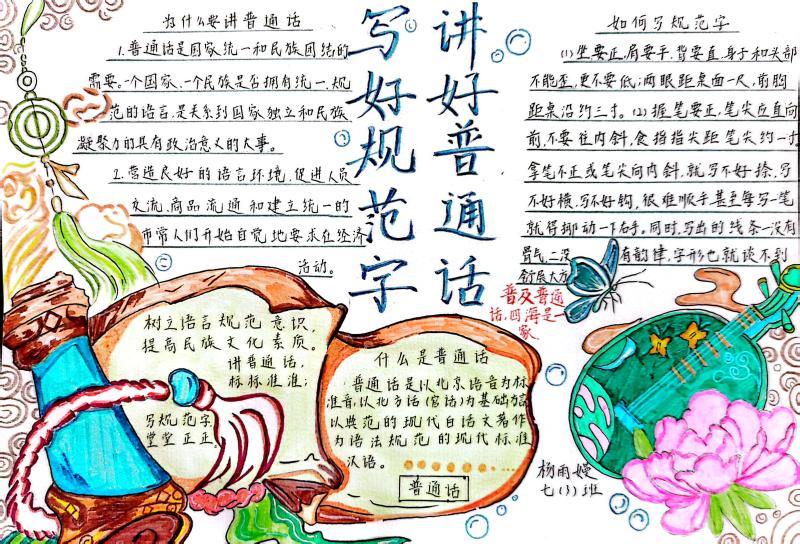 讲好普通话
写好规范字
为什么要讲普通话
1.普通话是国家统一和民族团结的
需要。一个国家、一个民族是否拥有统一、规
范的语言,是关系到国家独立和民族
凝聚力的具有政治意义的大事。
2.营造良好的语言环境,促进人员
交流,商品流通和建立统一的
市常人们开始自觉地要求在经济
活动。
如何写规范字
(1)坐要正,肩要平,背要直,身子和头部
不能歪,更不要低;两眼距桌面一尺,前胸
距桌沿约三寸。(2)握笔要正,笔尖应直向
前,不要往内斜,食指指尖距笔尖约一寸
拿笔不正或笔尖向内斜,就写不好捺,写
不好横,写不好钩,很难顺手甚至每写一笔
就得挪动一下右手。同时,写出的线条一没有
骨气,二没有韵律,字形也就谈不到
舒展大方
普及普通
话,四海是一
家
树立语言规范意识,
提高民族文化素质。
讲普通话,
标标准准;
写规范字
堂堂正正。
什么是普通话
普通话是以北京语音为标
准音,以北方话(官话)为基础方言
以典范的现代白话文著作
为语法规范的现代标准
汉语。
普通话
七(3)班